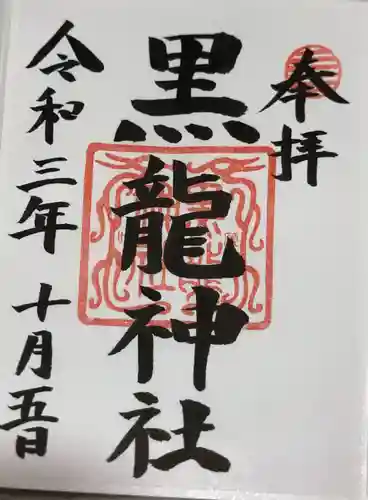 奉拝
黒龍神社
令和三年 十月五日